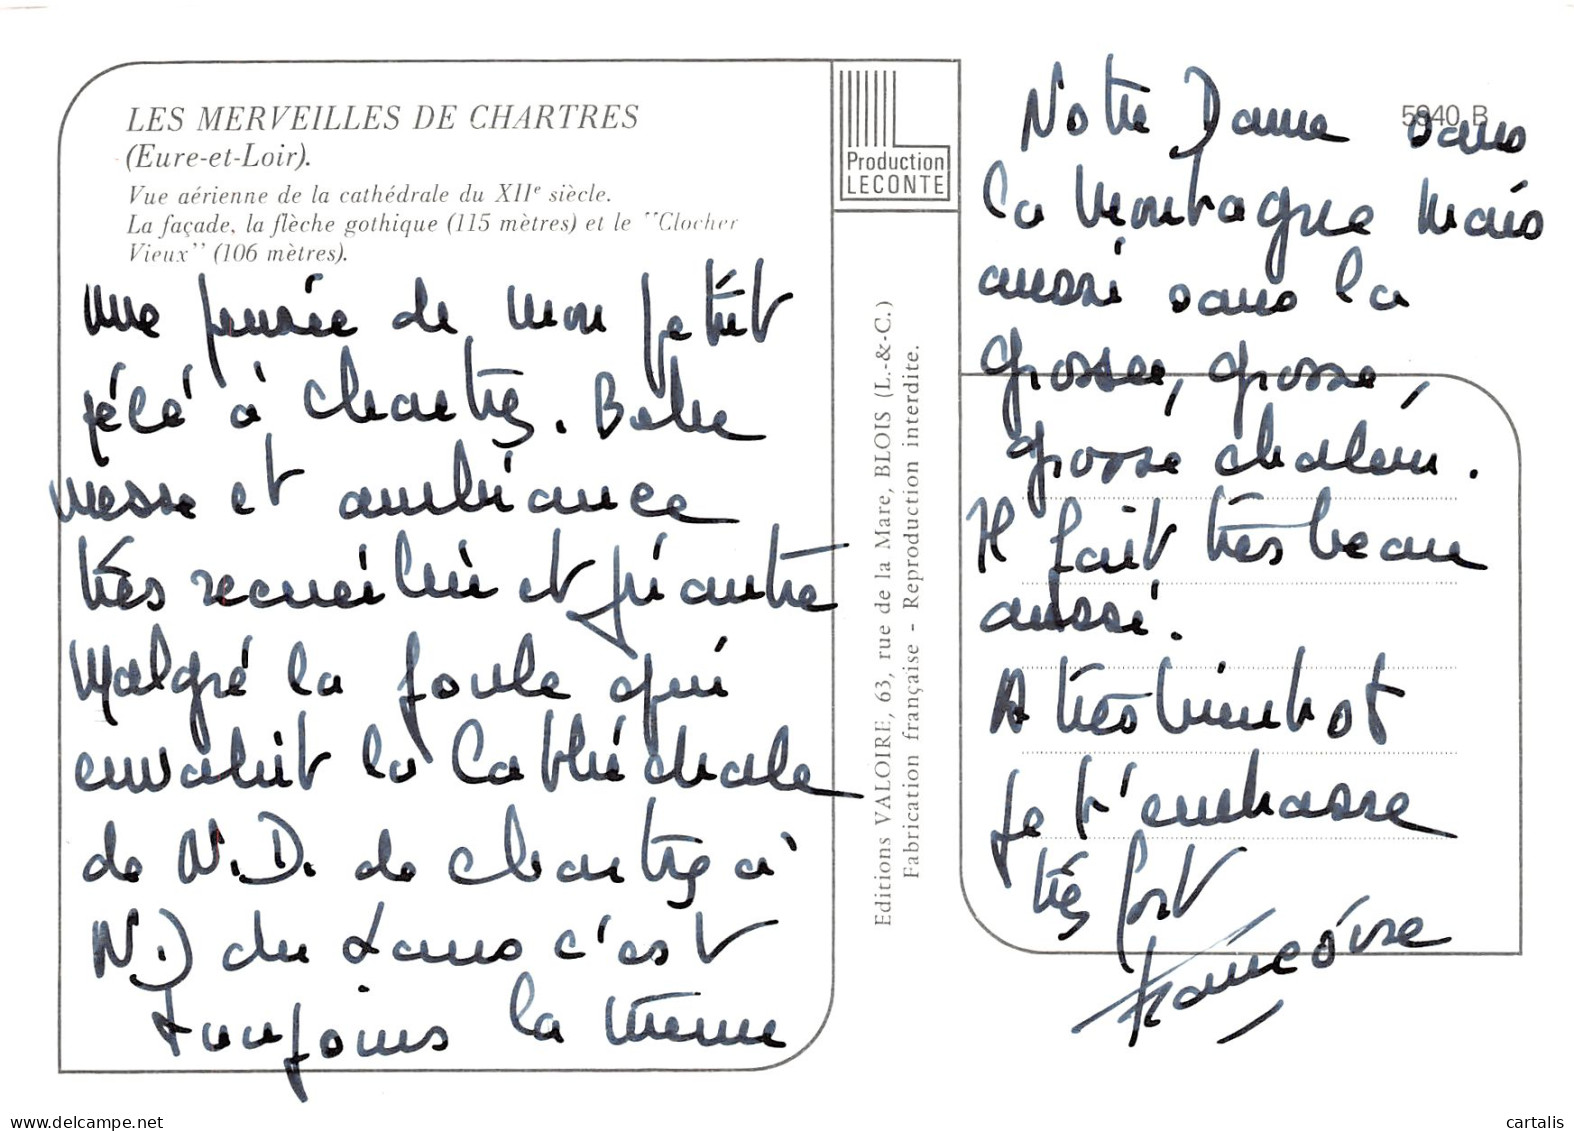 LES MERVEILLES DE CHARTRES
(Eure-et-Loir).
Vue aérienne de la cathédrale du XIIe siècle.
La façade, la flèche gothique (115 mètres) et le "Clocher
Vieux" (106 mètres).
une pensée de mon petit
pélé à Chartres. Belle
messe et ambiance
très recueillie et priante
Malgré la foule qui
envahit la Cathédrale
de N.D. de Chartres à
N.D du Laus c'est
Toujours la même
Production
LECONTE
Editions VALOIRE, 63, rue de la Mare, BLOIS (L.-&-C.)
Fabrication française - Reproduction interdite.
5940 B
Notre Dame dans
la Montagne Mais
aussi dans la
grosse, grosse,
grosse chaleur.
Il fait très beau
aussi.
A très bientôt
Je t'embrasse
très fort
Françoise
cartalis
delcampe.net